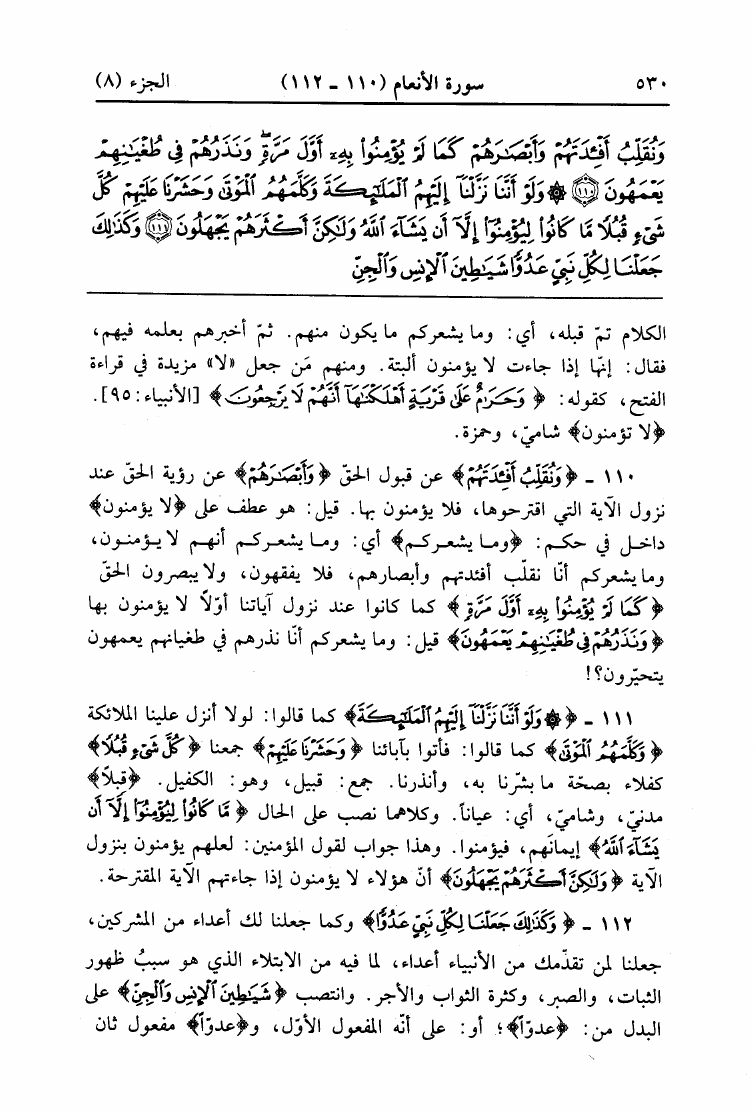 ٥٣٠ سورة الأنعام (١١٠ ـ ١١٢) الجزء (٨)
وَنُقَلِّبُ أَفْـِٔدَتَهُمْ وَأَبْصَـٰرَهُمْ كَمَا لَمْ يُؤْمِنُوا۟ بِهِۦٓ أَوَّلَ مَرَّةٍۖ وَنَذَرُهُمْ فِى طُغْيَـٰنِهِمْ
يَعْمَهُونَ ﴿١١٠﴾ ۞ وَلَوْ أَنَّنَا نَزَّلْنَآ إِلَيْهِمُ ٱلْمَلَـٰٓئِكَةَ وَكَلَّمَهُمُ ٱلْمَوْتَىٰ وَحَشَرْنَا عَلَيْهِمْ كُلَّ
شَىْءٍ قُبُلًا مَّا كَانُوا۟ لِيُؤْمِنُوٓا۟ إِلَّآ أَن يَشَآءَ ٱللَّهُ وَلَـٰكِنَّ أَكْثَرَهُمْ يَجْهَلُونَ ﴿١١١﴾ وَكَذَٰلِكَ
جَعَلْنَا لِكُلِّ نَبِىٍّ عَدُوًّا شَيَـٰطِينَ ٱلْإِنسِ وَٱلْجِنِّ
الكلام تمّ قبله، أي: وما يشعركم ما يكون منهم. ثمّ أخبرهم بعلمه فيهم،
فقال: إنّها إذا جاءت لا يؤمنون ألبتة. ومنهم مَن جعل «لا» مزيدة في قراءة
الفتح، كقوله: ﴿وَحَرَٰمٌ عَلَىٰ قَرْيَةٍ أَهْلَكْنَـٰهَآ أَنَّهُمْ لَا يَرْجِعُونَ﴾ [الأنبياء: ٩٥].
﴿لا تؤمنون﴾ شاميّ، وحمزة.
١١٠ ـ ﴿وَنُقَلِّبُ أَفْـِٔدَتَهُمْ﴾ عن قبول الحقّ ﴿وَأَبْصَـٰرَهُمْ﴾ عن رؤية الحقّ عند
نزول الآية التي اقترحوها، فلا يؤمنون بها. قيل: هو عطف على ﴿لا يؤمنون﴾
داخل في حكم: ﴿وما يشعركم﴾ أي: وما يشعركم أنهم لا يؤمنون،
وما يشعركم أنّا نقلّب أفئدتهم وأبصارهم، فلا يفقهون، ولا يبصرون الحقّ
﴿كَمَا لَمْ يُؤْمِنُوا۟ بِهِۦٓ أَوَّلَ مَرَّةٍ﴾ كما كانوا عند نزول آياتنا أوّلاً لا يؤمنون بها
﴿وَنَذَرُهُمْ فِى طُغْيَـٰنِهِمْ يَعْمَهُونَ﴾ قيل: وما يشعركم أنّا نذرهم في طغيانهم يعمهون
يتحيّرون؟!
١١١ ـ ﴿۞ وَلَوْ أَنَّنَا نَزَّلْنَآ إِلَيْهِمُ ٱلْمَلَـٰٓئِكَةَ﴾ كما قالوا: لولا أنزل علينا الملائكة
﴿وَكَلَّمَهُمُ ٱلْمَوْتَىٰ﴾ كما قالوا: فأتوا بآبائنا ﴿وَحَشَرْنَا عَلَيْهِمْ﴾ جمعنا ﴿كُلَّ شَىْءٍ قُبُلًا﴾
كفلاء بصحّة ما بشّرنا به، وأنذرنا. جمع: قبيل، وهو: الكفيل. ﴿قبلاً﴾
مدنيّ، وشاميّ، أي: عياناً. وكلاهما نصب على الحال ﴿مَّا كَانُوا۟ لِيُؤْمِنُوٓا۟ إِلَّآ أَن
يَشَآءَ ٱللَّهُ﴾ إيمانَهم، فيؤمنوا. وهذا جواب لقول المؤمنين: لعلهم يؤمنون بنزول
الآية ﴿وَلَـٰكِنَّ أَكْثَرَهُمْ يَجْهَلُونَ﴾ أنّ هؤلاء لا يؤمنون إذا جاءتهم الآية المقترحة.
١١٢ ـ ﴿وَكَذَٰلِكَ جَعَلْنَا لِكُلِّ نَبِىٍّ عَدُوًّا﴾ وكما جعلنا لك أعداء من المشركين،
جعلنا لمن تقدّمك من الأنبياء أعداء، لما فيه من الابتلاء الذي هو سببُ ظهور
الثبات، والصبر، وكثرة الثواب والأجر. وانتصب ﴿شَيَـٰطِينَ ٱلْإِنسِ وَٱلْجِنِّ﴾ على
البدل من: ﴿عدوّاً﴾؛ أو: على أنّه المفعول الأوّل، و﴿عدوّاً﴾ مفعول ثان